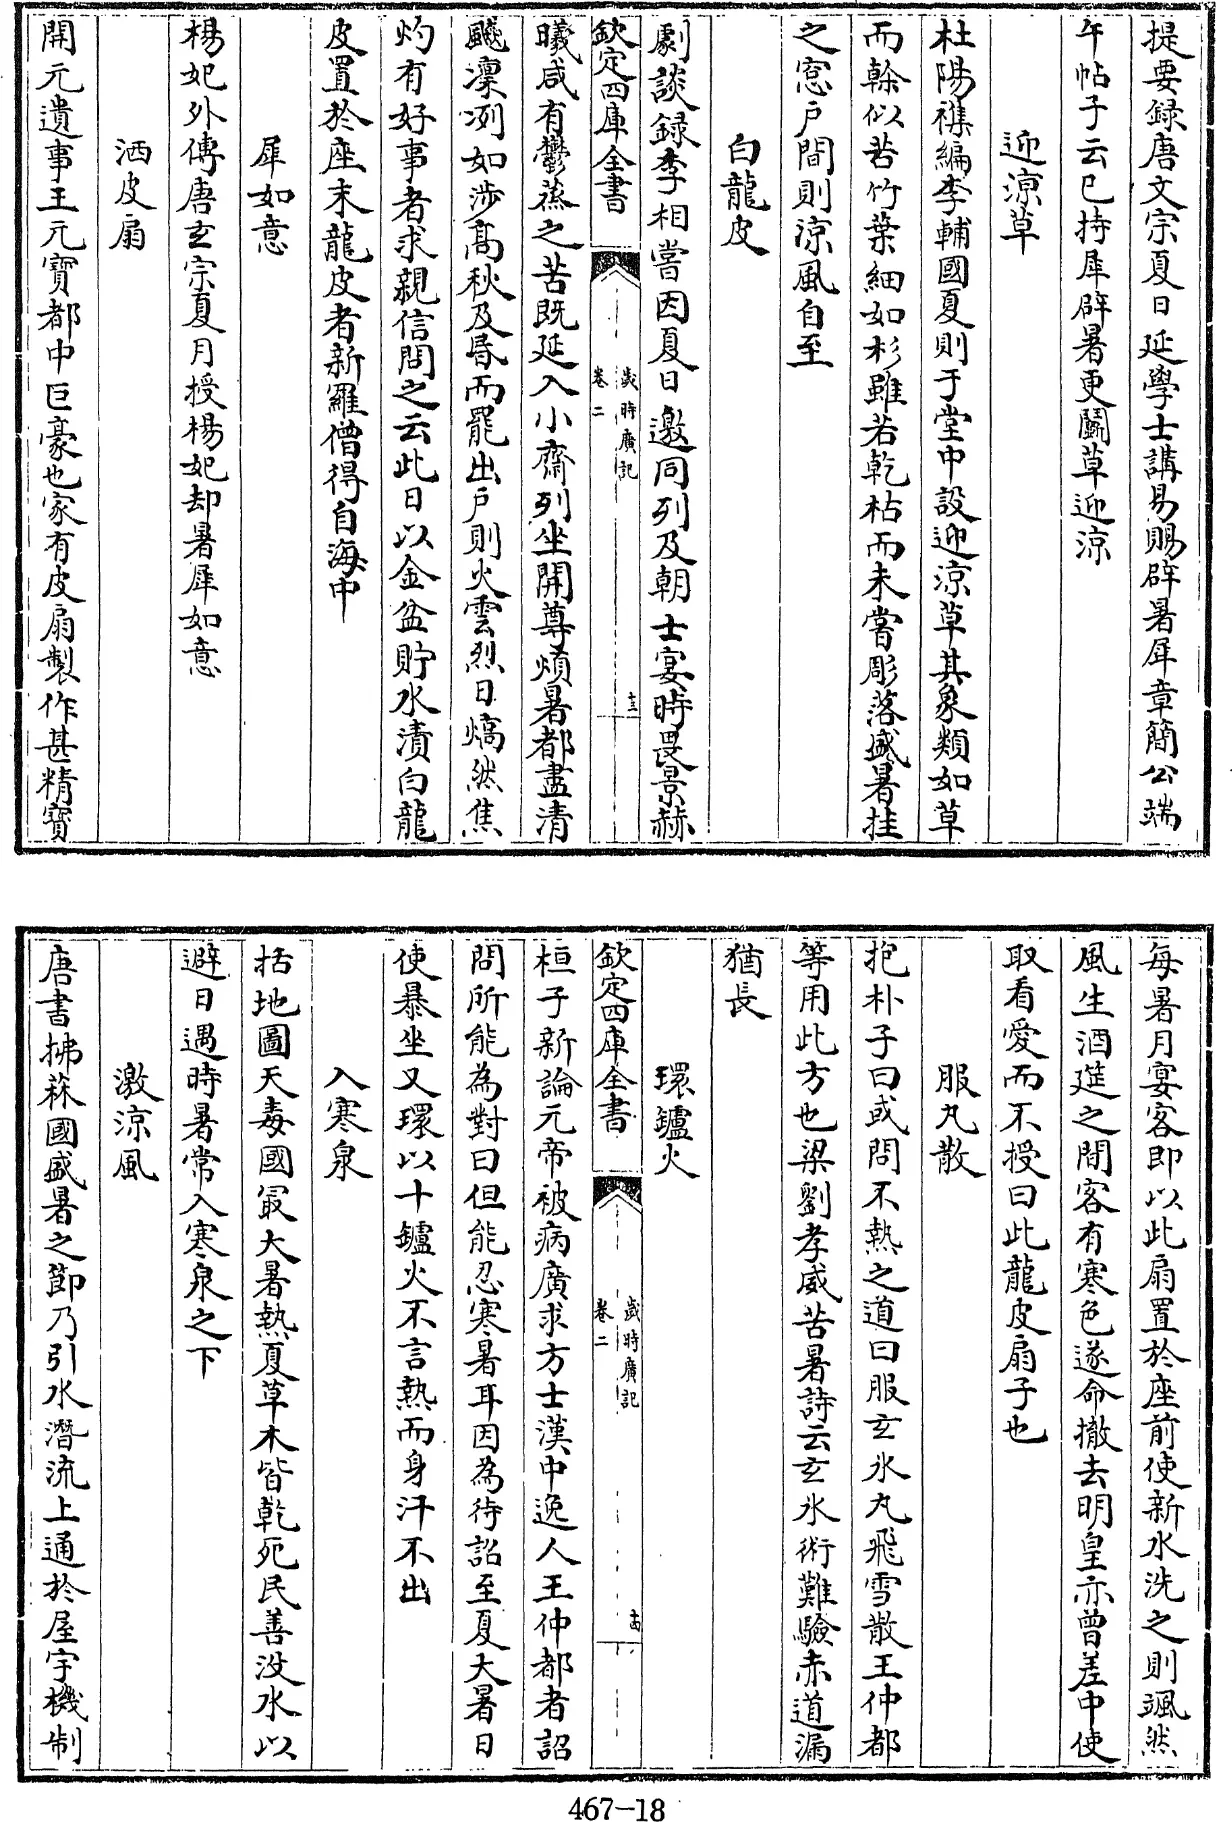 提要録唐文宗夏日延學士講易賜辟暑犀章簡公端
午帖子云已持犀辟暑更鬭草迎涼
迎涼草
杜陽雜編李輔國夏則于堂中設迎涼草其象類如草
而榦似苦竹葉細如杉雖若乾枯而未嘗彫落盛暑挂
之窓户間則涼風自至
白龍皮
劇談録李相嘗因夏日邀同列及朝士宴時畏景赫
欽定四庫全書
歲時廣記
卷二
十三
曦咸有鬱蒸之苦既延入小齋列坐開尊煩暑都盡清
飈凜冽如涉髙秋及昏而罷出戶則火雲烈日熇然焦
灼有好事者求親信問之云此日以金盆貯水漬白龍
皮置於座末龍皮者新羅僧得自海中
犀如意
楊妃外傳唐玄宗夏月授楊妃却暑犀如意
洒皮扇
開元遺事王元寳都中巨豪也家有皮扇製作甚精寳
每暑月宴客即以此扇置於座前使新水洗之則颯然
風生酒筵之間客有寒色遂命撤去明皇亦曾差中使
取看愛而不授曰此龍皮扇子也
服丸散
抱朴子曰或問不熱之道曰服玄氷丸飛雪散王仲都
等用此方也梁劉孝威苦暑詩云玄氷術難驗赤道漏
猶長
環鑪火
欽定四庫全書
歲時廣記
卷二
十四
桓子新論元帝被病廣求方士漢中逸人王仲都者詔
問所能為對曰但能忍寒暑耳因為待詔至夏大暑日
使暴坐又環以十鑪火不言熱而身汗不出
入寒泉
括地圖天毒國冣大暑熱夏草木皆乾死民善没水以
避日遇時暑常入寒泉之下
激涼風
唐書拂菻國盛暑之節乃引水潛流上通於屋宇機制
467-18